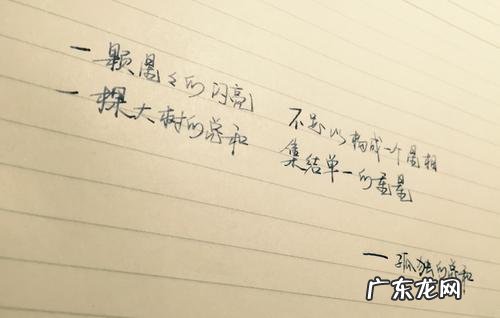 一颗星星的闪亮
不足以构成一个星相
一棵大树的总和
集结单一的重量
一孤独的总和
广东龙网